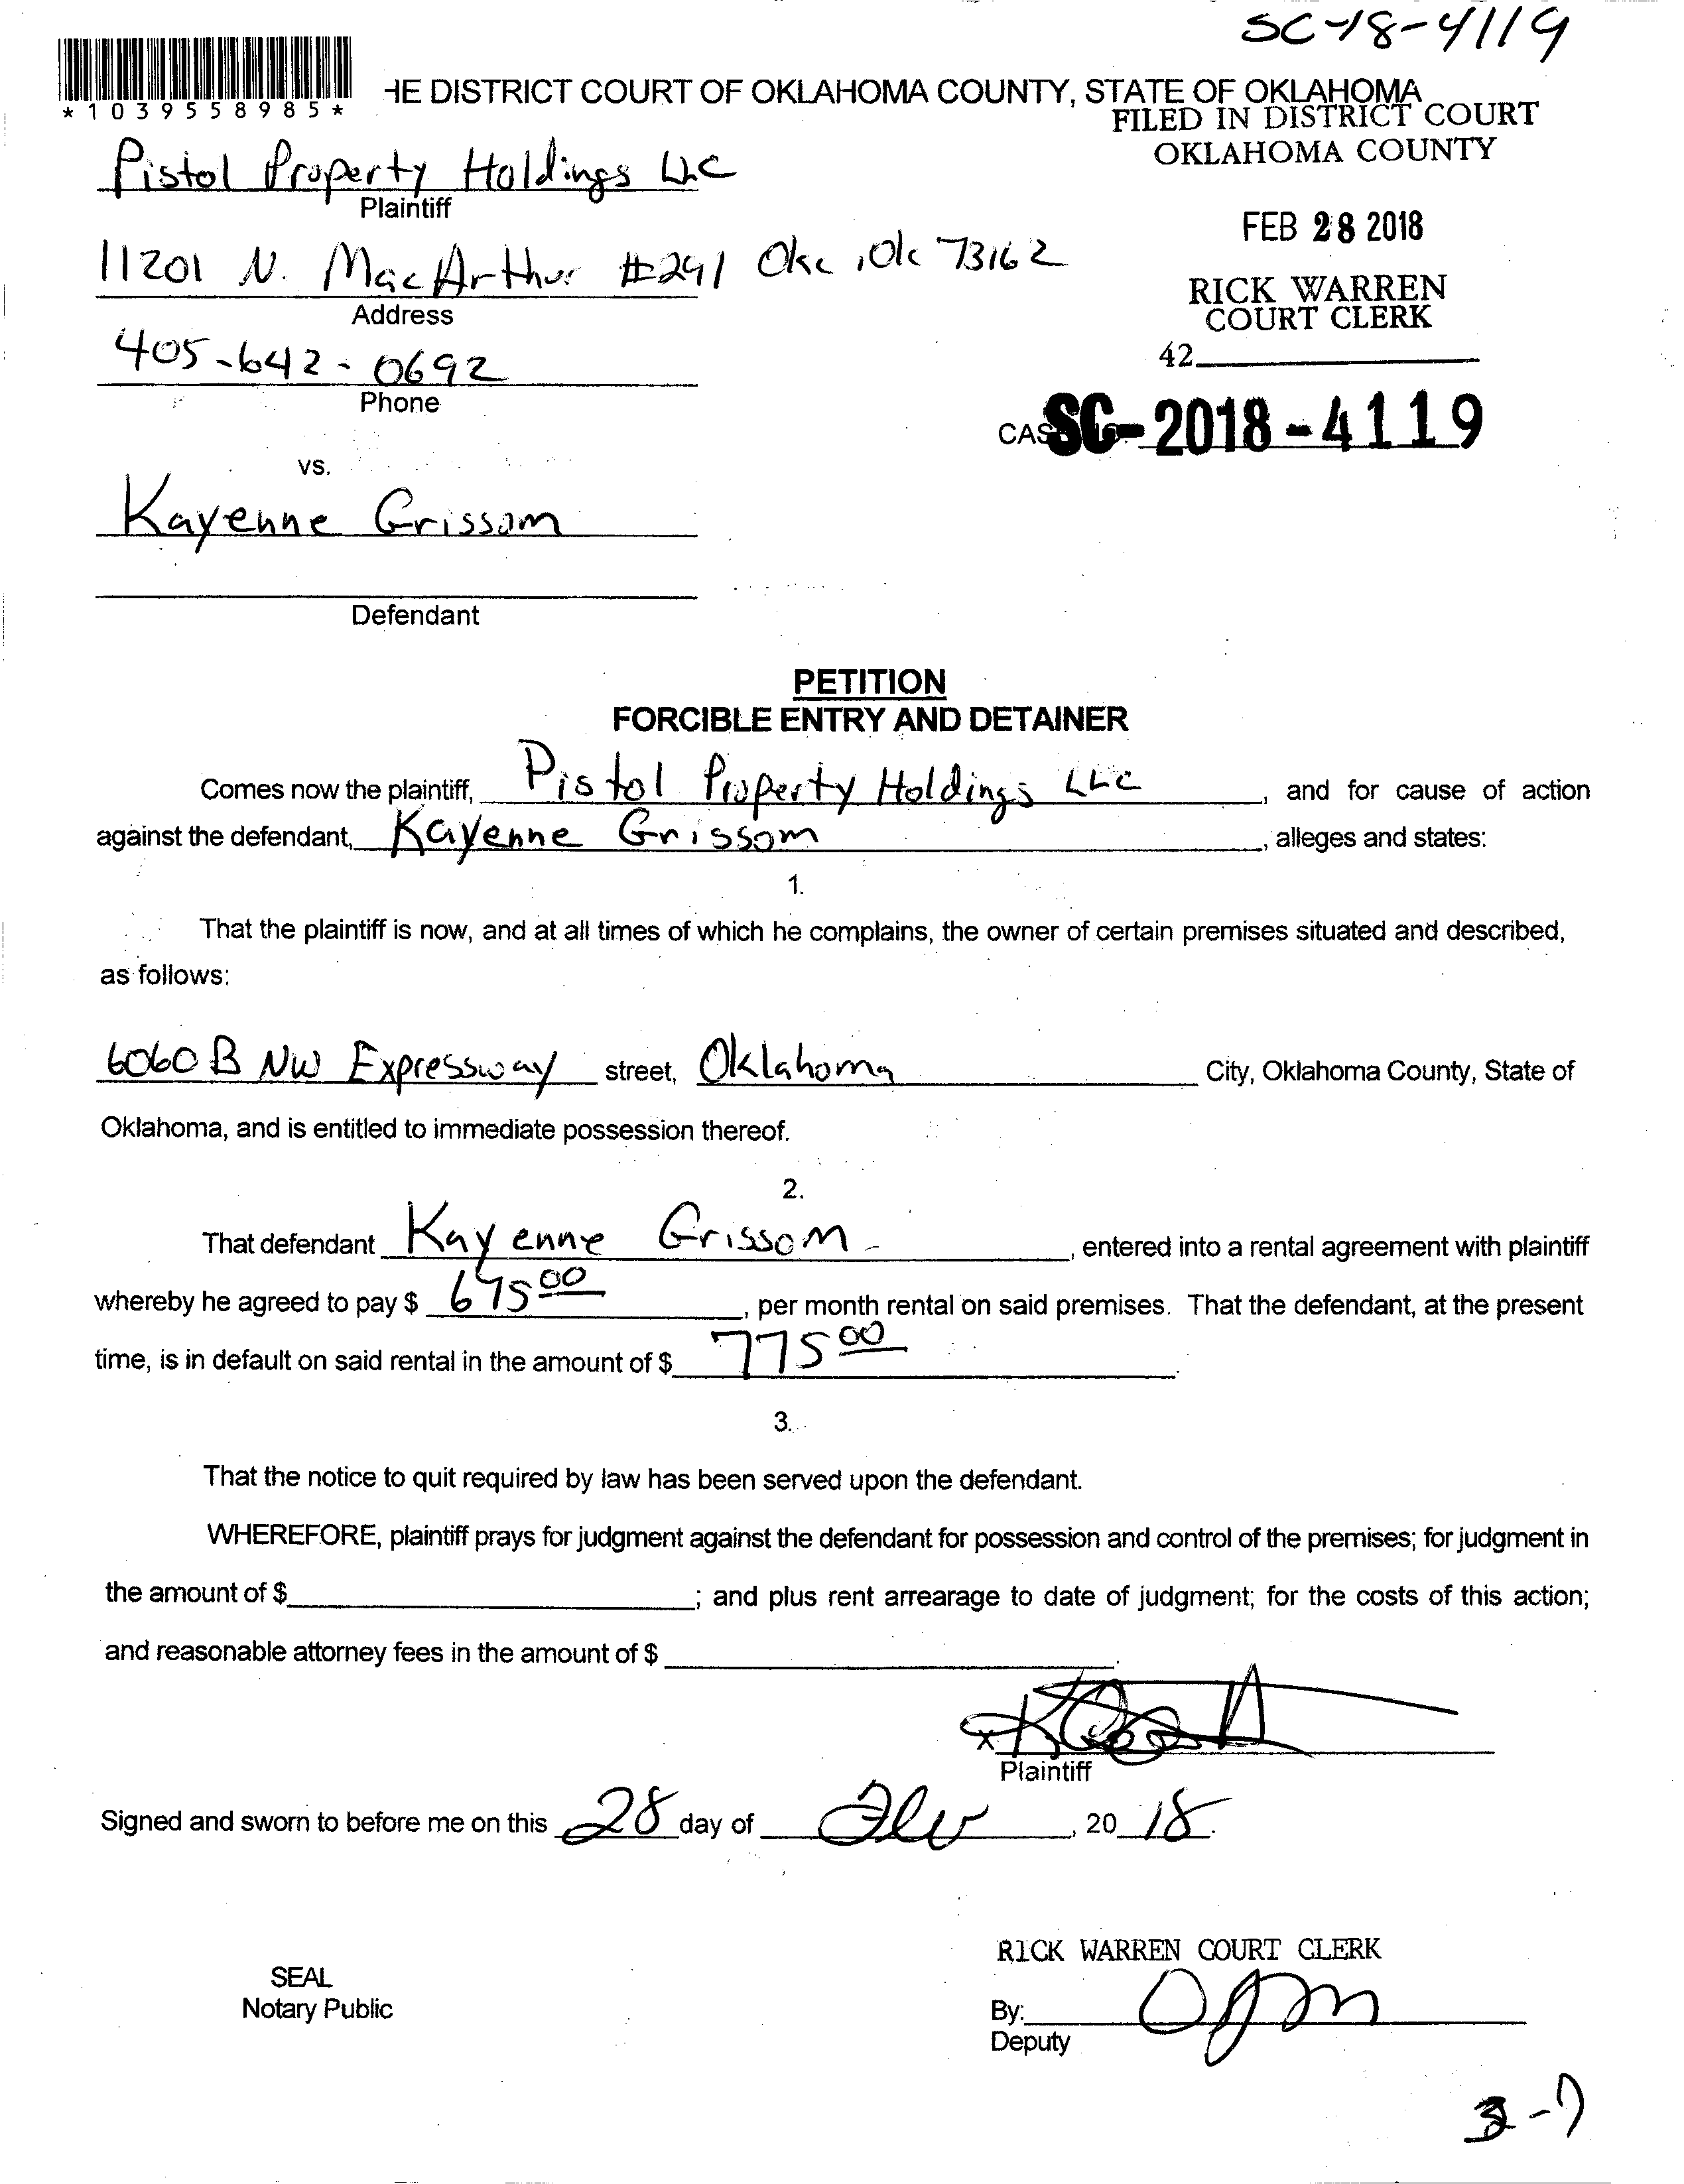 SC-18-4119
*1039558985*
HE DISTRICT COURT OF OKLAHOMA COUNTY, STATE OF OKLAHOMA
FILED IN DISTRICT COURT
OKLAHOMA COUNTY
Pistol Property Holdings LLC
Plaintiff
FEB 28 2018
11201 N. MacArthur #291 Okc, Ok 73162
Address
RICK WARREN
COURT CLERK
405-642-0692
Phone
42
CAS SC-2018-4119
vs.
Kayenne Grissom
Defendant
PETITION
FORCIBLE ENTRY AND DETAINER
Comes now the plaintiff, Pistol Property Holdings LLC, and for cause of action
against the defendant, Kayenne Grissom, alleges and states:
1.
That the plaintiff is now, and at all times of which he complains, the owner of certain premises situated and described,
as follows:
6060 B NW Expressway street, Oklahoma City, Oklahoma County, State of
Oklahoma, and is entitled to immediate possession thereof.
2.
That defendant Kayenne Grissom, entered into a rental agreement with plaintiff
whereby he agreed to pay $ 675 00, per month rental on said premises. That the defendant, at the present
time, is in default on said rental in the amount of $ 775 00.
3.
That the notice to quit required by law has been served upon the defendant.
WHEREFORE, plaintiff prays for judgment against the defendant for possession and control of the premises; for judgment in
the amount of $; and plus rent arrearage to date of judgment; for the costs of this action;
and reasonable attorney fees in the amount of $.
x
Plaintiff
Signed and sworn to before me on this 28 day of Feb, 20 18.
RICK WARREN COURT CLERK
SEAL
Notary Public
By:
Deputy
3-7